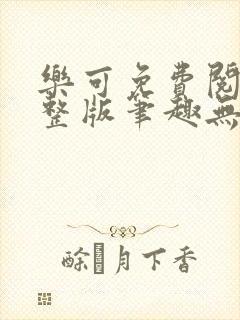 樂可免費閱
整版筆趣無
酴月下香